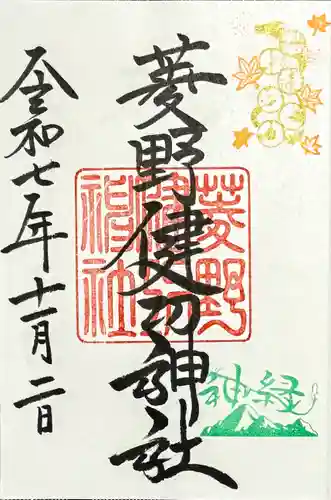 菱野健功神社
令和七年十一月二日
菱野
健功
神社
神経